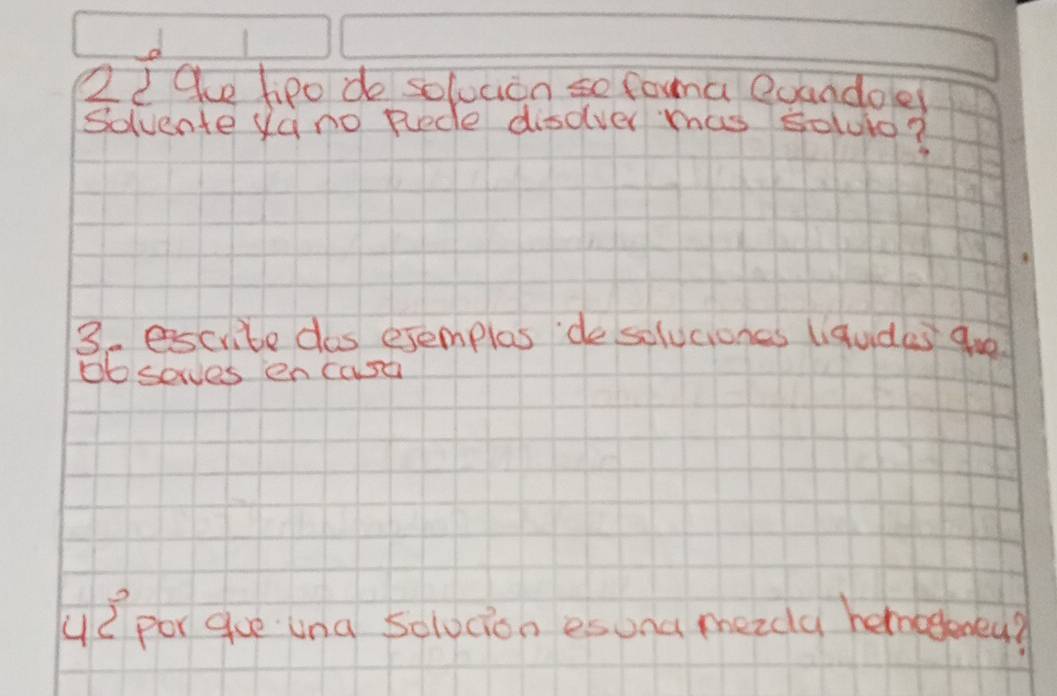 2¿ que tipo de solución se forma Quando el
solvente ya no Puede disolver mas soluto?
3- escribe dos ejemplos de soluciones liquidas que
observes en casa
4¿ por que una solución es una mezcla homogenea?